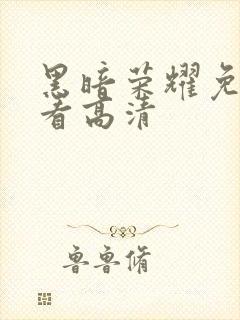 黑暗荣耀免
看高清
鲁鲁脩